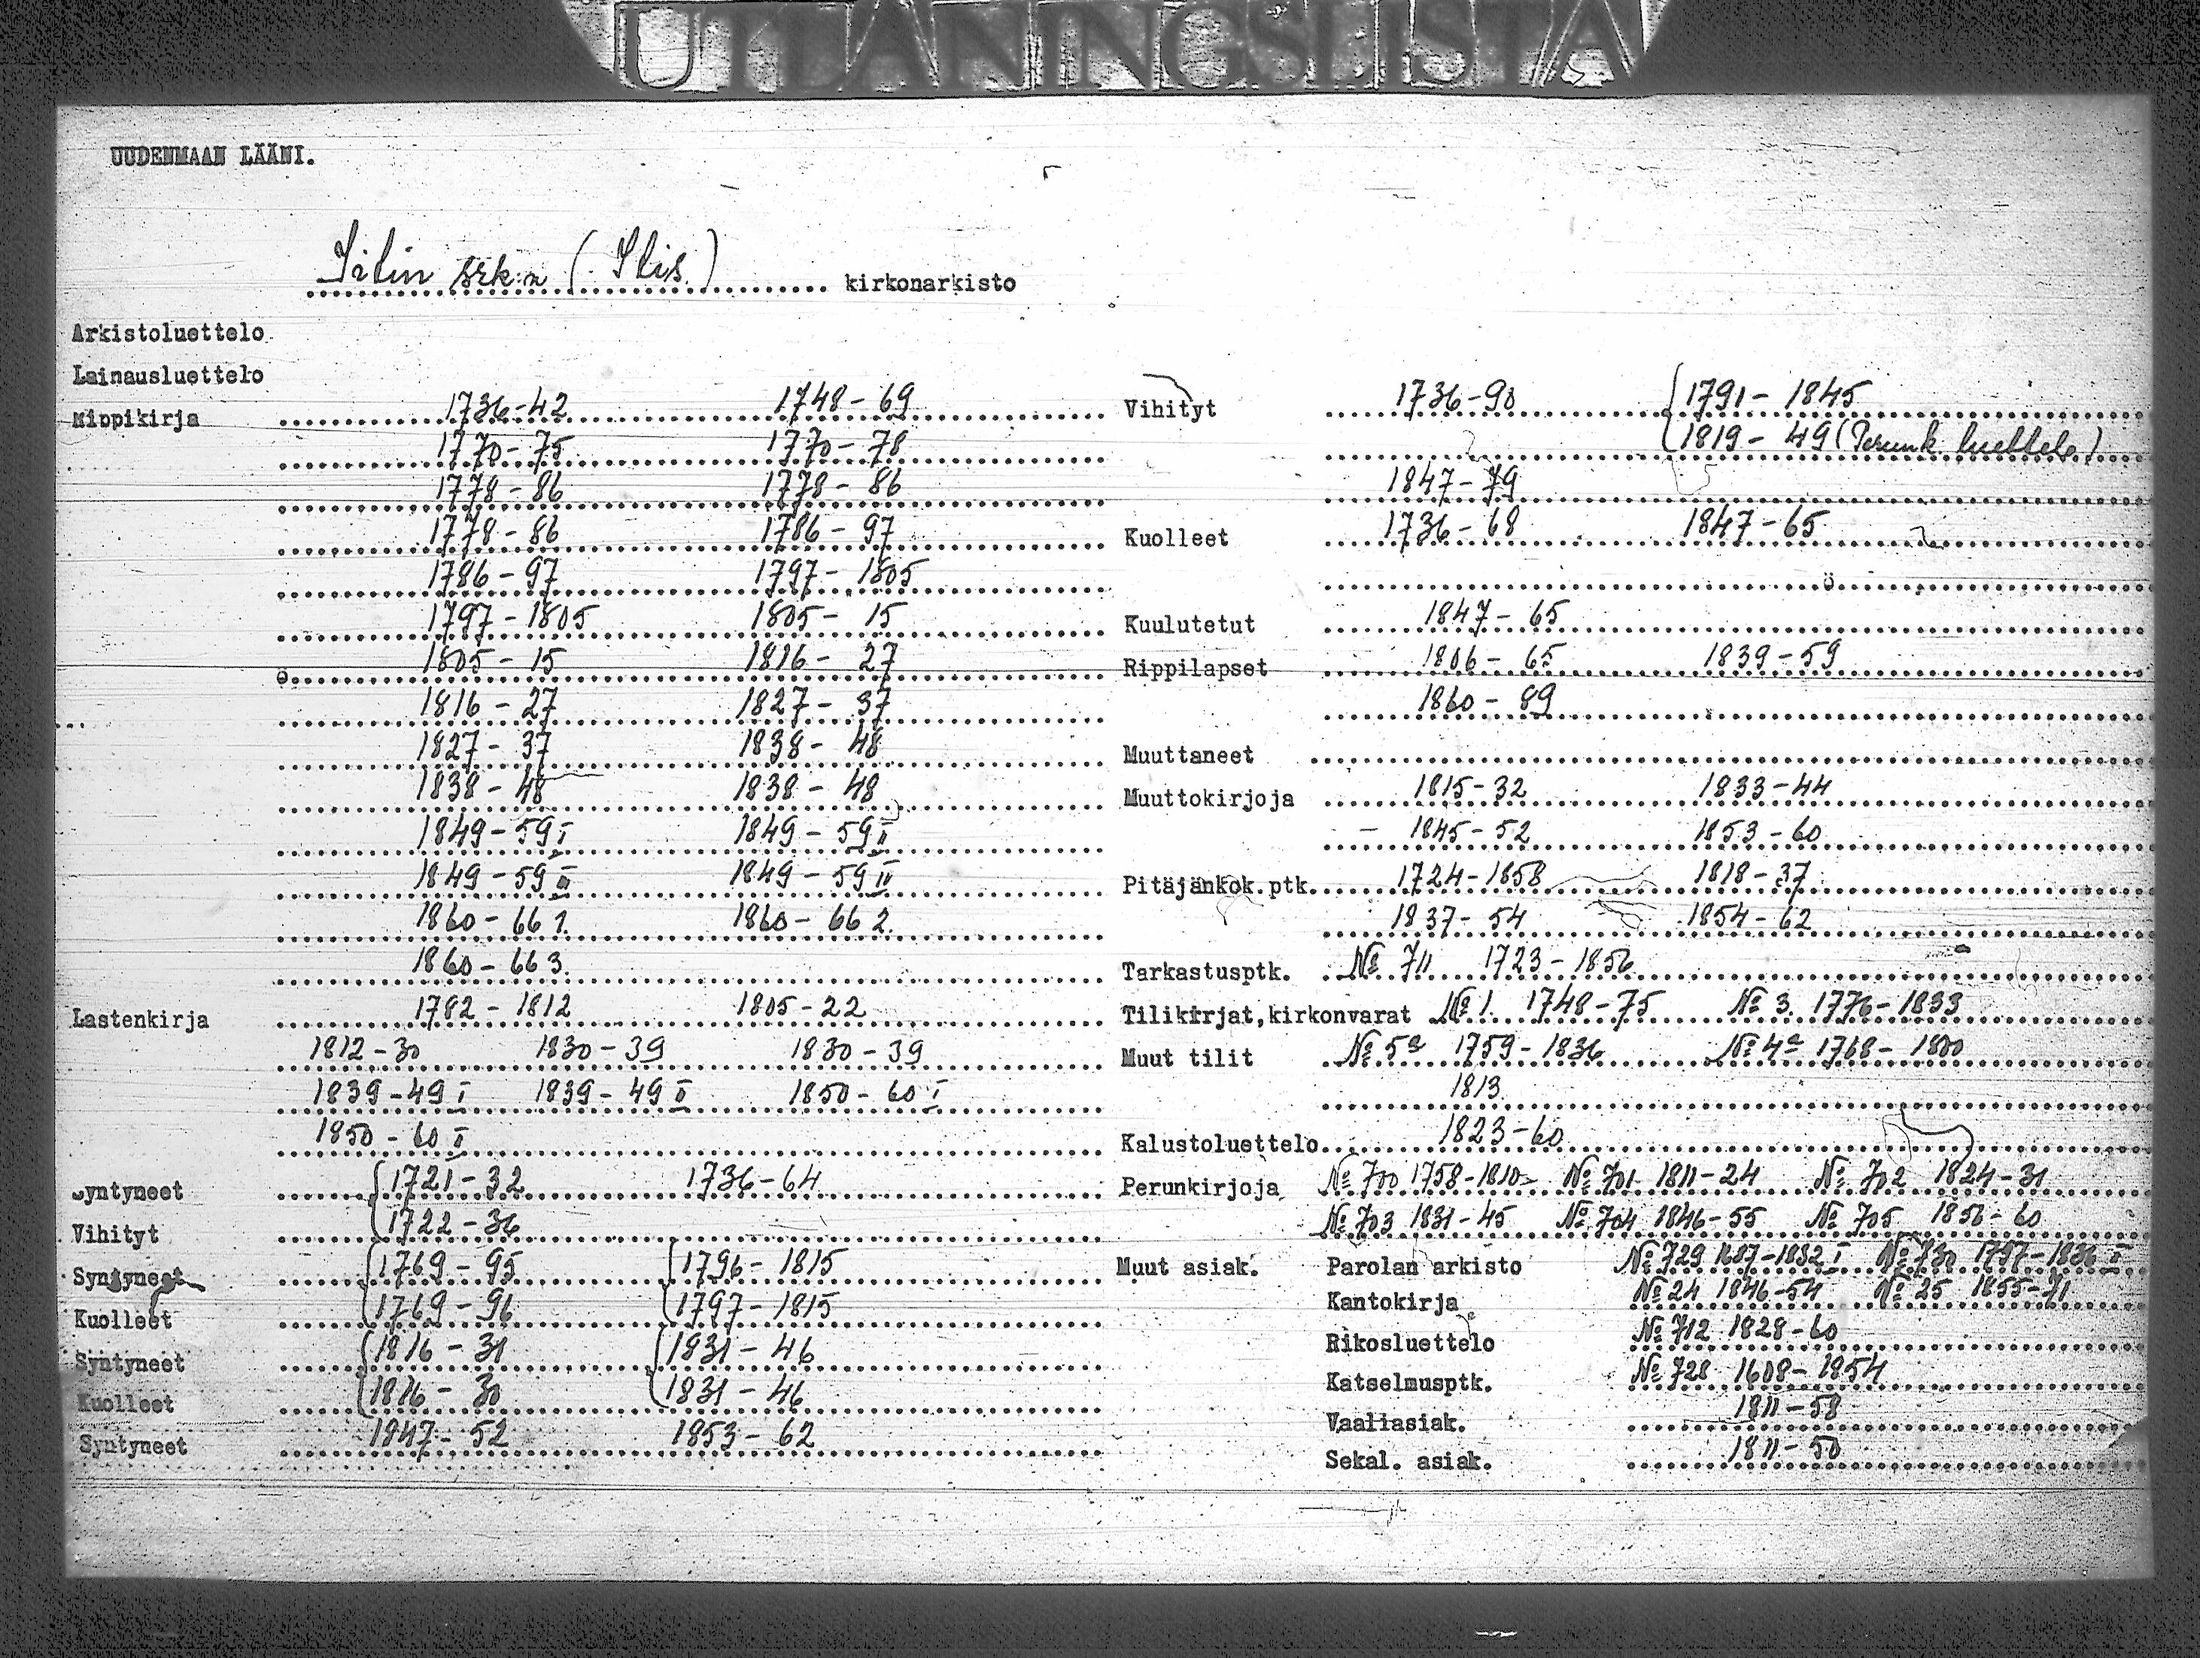 UTTANINGSLISTA
UUDENMAAN LÄÄNI.
srk:n ( ) kirkonarkisto
Arkistoluettelo
Lainausluettelo
Rippikirja 1736-42 1748-69
1770-75 1770-78
1778-86 1778-86
1778-86 1786-97
1786-97 1797-1805
1797-1805 1805-15
1805-15 1816-27
1816-27 1827-37
1827-37 1838-48
1838-48 1838-48
1849-59 I 1849-59 II
1849-59 1849-59
1860-66 1. 1860-66 2.
1860-66 3.
Lastenkirja 1782-1812 1805-22
1812-30 1830-39 1830-39
1839-49 I 1839-49 II 1850-60 I
1850-60 II
Syntyneet 1721-32 1736-64
Vihityt 1722-36
Syntyneet 1769-95 1796-1815
Kuolleet 1769-96 1797-1815
Syntyneet 1816-31 1831-46
Kuolleet 1816-30 1831-46
Syntyneet 1847-52 1853-62
Vihityt 1736-90 1791-1845
1819-49 (Perunk. luettelo)
1847-79
Kuolleet 1736-68 1847-65
Kuulutetut 1847-65
Rippilapset 1806-65 1839-59
1860-89
Muuttaneet
Muuttokirjoja 1815-32 1833-44
1845-52 1853-60
Pitäjänkok.ptk. 1724-1858 1818-37
1837-54 1854-62
Tarkastusptk. № 711 1723-1856
Tilikirjat,kirkonvarat № 1. 1748-75 № 3 1776-1833
Muut tilit № 5a 1759-1836 № 4a 1768-1800
1813
Kalustoluettelo 1823-60
Perunkirjoja № 700 1758-1810 № 701 1811-24 № 702 1824-31
№ 703 1831-45 № 704 1846-55 № 705 1856-60
Muut asiak. Parolan arkisto № 729 1687-1832 I № 730 1797-1836 II
Kantokirja № 24 1846-54 № 25 1855-71
Rikosluettelo № 712 1828-60
Katselmusptk. № 728 1608-1854
Vaaliasiak. 1811-58
Sekal. asiak. 1811-50